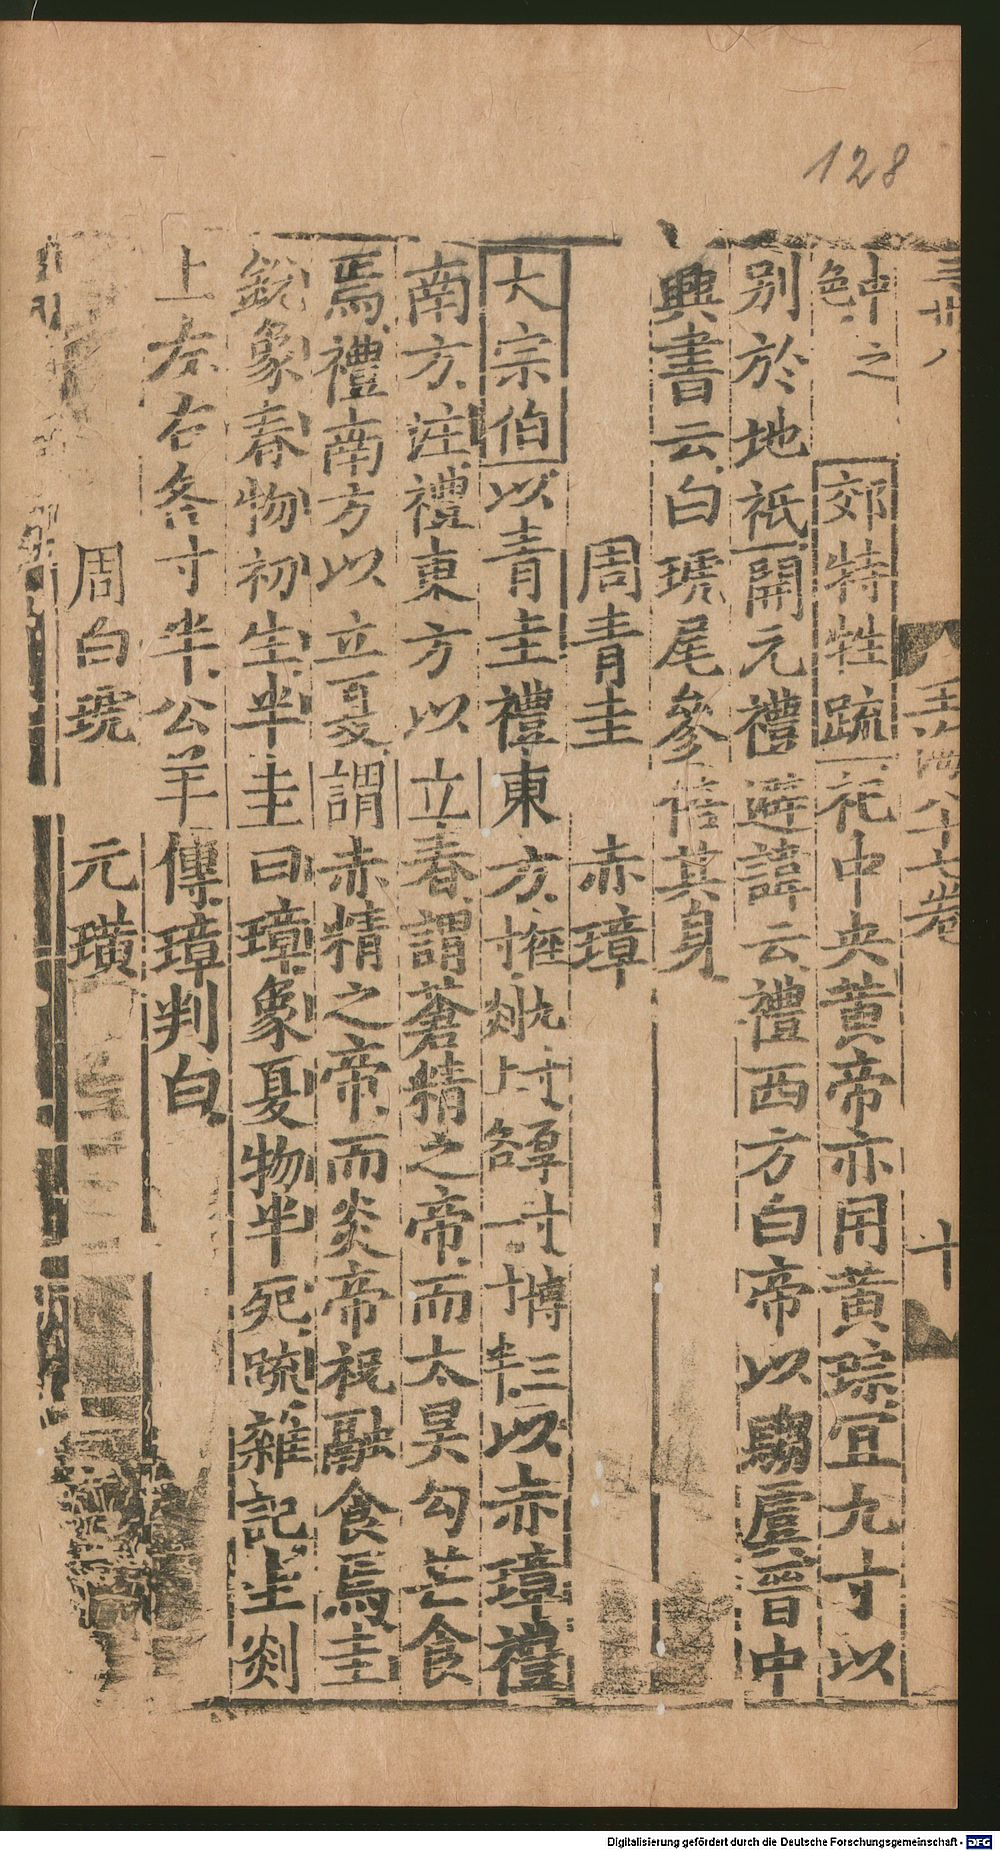 128
玉海八十七卷
十
中之色 郊特牲疏祀中央黄帝亦用黄琮冝九寸以
别於地祗開元禮避諱云禮西方白帝以騶虞晉中
興書云白琥尾參倍其身
周青圭 赤璋
大宗伯以青圭禮東方以赤璋禮
南方注禮東方以立春謂蒼精之帝而太昊勾芒食
焉禮南方以立夏謂赤精之帝而炎帝祝融食焉圭
銳象春物初生半圭曰璋象夏物半死疏雜記圭剡
上左右各寸半公羊傳璋判白
周白琥 元璜
Digitalisierung gefördert durch die Deutsche Forschungsgemeinschaft - DFG